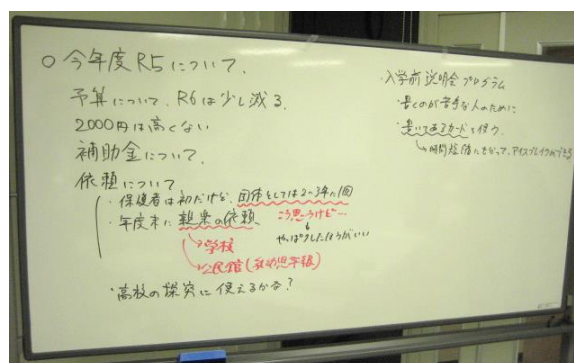 ○今年度R5について、
予算について、R6は少し減る
2000円は高くない
補助金について、
依頼について
・保護者は初だけど、団体としては2〜3年に1回
・年度末に親楽の依頼、
こう思うけど…
やっぱりしたほうがいい
→学校
→公民館(乳幼児学級)
・高校の探究に使えるかな?
・入学前説明会プログラム
書くのが苦手な人のために
書いてあるカードを使う、
→時間短縮にもなって、アイスブレイクができる